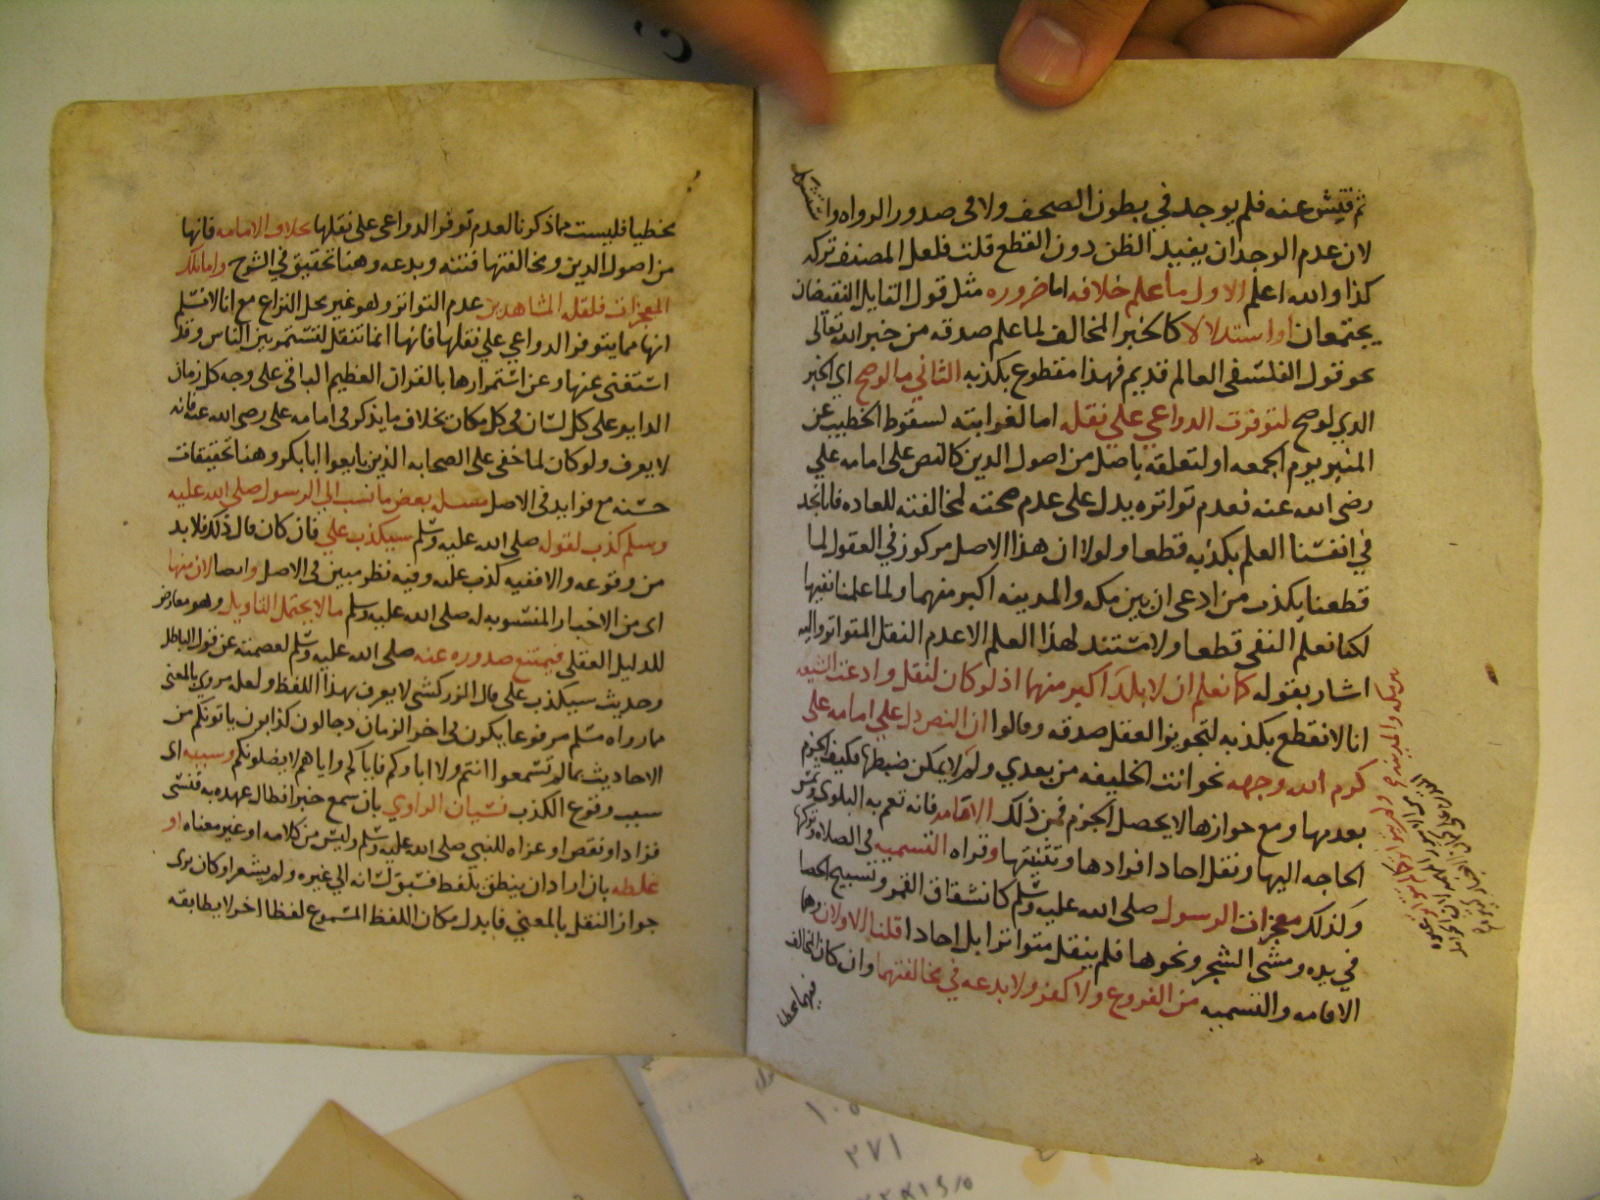 ثم فتش عنه فلم يوجد في بطون الصحف ولا في صدور الرواه وا
لان عدم الوجدان يفيد الظن دون القطع قلت فلعل المصنف تركه
كذا والله اعلم الاول ما علم خلافه اما ضروره مثل قول القايل النقيضان
يجتمعان او استدلالا كالخبر المخالف لما علم صدقه من خبر الله تعالى
نحو قول الفلسفى العالم قديم فهذا مقطوع بكذبه الثاني ما لو صح اى الخبر
الذي لو صح لتوفرت الدواعي على نقله اما لغرابته لسقوط الخطيب عن
المنبر يوم الجمعه او لتعلقه باصل من اصول الدين كالنص على امامه علي
رضى الله عنه فعدم تواتره يدل على عدم صحته لمخالفته للعاده فانا نجد
في انفسنا العلم بكذبه قطعا ولولا ان هذا الاصل مركوز في العقول لما
قطعنا بكذب من ادعى ان بين مكه والمدينه اكبر منهما ولما علمنا نفيها
لكنا نعلم النفى قطعا ولا مستند لهذا العلم الا عدم النقل المتواتر واليه
اشار بقوله كما نعلم ان لا بلد اكبر منهما اذ لو كان لنقل وادعت الشيعه
انا لا نقطع بكذبه لتجويز العقل صدقه وقالوا ان النص دل على امامه على
كرم الله وجهه نحو انت الخليفه من بعدي ولم لا يمكن ضبطها فكيف الجزم
بعدمها ومع جوازها لا يحصل الجزم فمن ذلك الاقامه فانه تعم به البلوى وتمس
الحاجه اليها ونقل احاد افرادها وتثنيتها وتراه التسميه في الصلاه وتركها
وكذلك معجزات الرسول صلى الله عليه وسلم كانشقاق القمر وتسبيح الحصا
في يده ومشى الشجر ونحوها فلم ينقل متواترا بل احادا قلنا الاولان وهما
الاقامه والتسميه من الفروع ولا كفر ولا بدعه في مخالفتهما وان كان المخالف
فيهما مخطيا
مخطيا فليست مما ذكرنا لعدم توفر الدواعى على نقلها بخلاف الامامه فانها
من اصول الدين ومخالفتها فتنه وبدعه وهنا تحقيق في الشرح واما تلك
المعجزات فلقله المشاهدين عدم التواتر وهو غير محل النزاع مع انا لا نسلم
انها مما يتوفر الدواعي علي نقلها فانها انما تنقل لتستمر بين الناس وقد
استغنى عنها وعن استمرارها بالقران العظيم الباقى على وجه كل زمان
الداير على كل لسان في كل مكان بخلاف ما يذكر في امامه على رضى الله عنه فانه
لا يعرف ولو كان لما خفى على الصحابه الذين بايعوا ابا بكر وهنا تحقيقات
حسنه مع فوايد في الاصل مسله بعض ما نسب الى الرسول صلى الله عليه
وسلم كذب لقوله صلى الله عليه وسلم سيكذب علي فان كان قال ذلك فلا بد
من وقوعه والا ففيه كذب عليه وفيه نظر مبين في الاصل وايضا لان منها
اى من الاخبار المنسوبه له صلى الله عليه وسلم ما لا يحتمل التاويل وهو معارض
للدليل العقلى فيمتنع صدوره عنه صلى الله عليه وسلم لعصمته عن قول الباطل
وحديث سيكذب على قال الزركشى لا يعرف بهذا اللفظ ولعله مروي بالمعنى
مما رواه مسلم مرفوعا يكون فى اخر الزمان دجالون كذابون ياتونكم من
الاحاديث بما لم تسمعوا انتم ولا اباوكم فاياكم واياهم لا يضلونكم وسببه اى
سبب وقوع الكذب نسيان الراوي بان سمع خبرا فطال عهده به فنسى
فزاد او نقص او عزاه للنبي صلى الله عليه وسلم وليس من كلامه او غير معناه او
غلطه بان اراد ان ينطق بلفظ فسبق لسانه الى غيره ولم يشعر او كان يرى
جواز النقل بالمعني فابدل مكان اللفظ المسموع لفظا اخر لا يطابقه
١٠٥
٢٧١